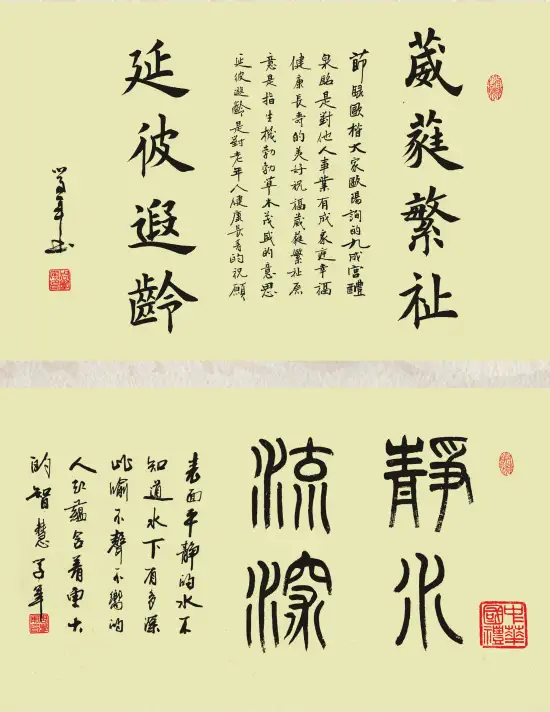 葳蕤繁祉
節錄歐楷大家歐陽詢的九成宮醴
泉銘是對他人事業有成家庭幸福
健康長壽的美好祝福葳蕤繁祉原
意是指生機勃勃草木茂盛的意思
延彼遐齡是對老年人健康長壽的祝願
延彼遐齡
靜水
流深
表面平靜的水不
知道水下有多深
此喻不聲不響的
人卻蘊含着重大
的智慧
中華
國禮